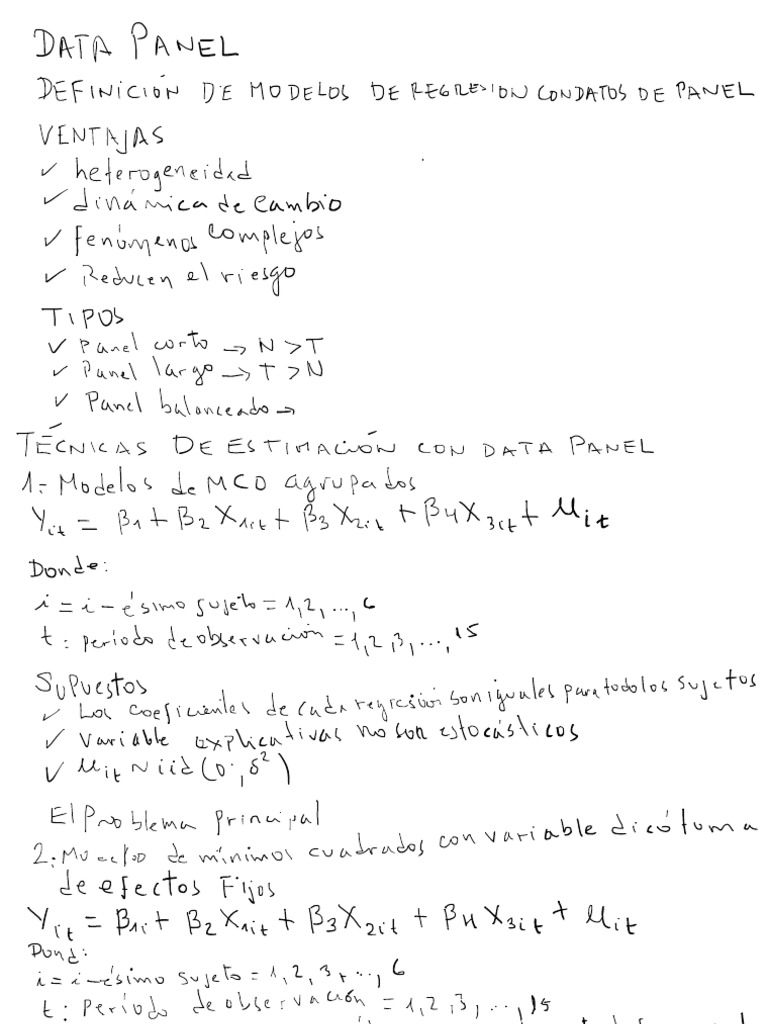 DATA PANEL
DEFINICIÓN DE MODELOS DE REGRESION CON DATOS DE PANEL
VENTAJAS
✓ heterogeneidad
✓ dinámica de Cambio
✓ fenómenos complejos
✓ Reducen el riesgo
TIPOS
✓ Panel corto → N > T
✓ Panel largo → T > N
✓ Panel balanceado →
TÉCNICAS DE ESTIMACIÓN CON DATA PANEL
1.- Modelos de MCO agrupados
Yit = β1 + β2 X1it + β3 X2it + β4 X3it + μit
Donde:
i = i-ésimo sujeto = 1, 2, ..., 6
t : período de observación = 1, 2, 3, ..., 15
Supuestos
✓ Los coeficientes de cada regresión son iguales para todo los sujetos
✓ Variable explicativas no son estocásticos
✓ μit ~ iid (0; δ²)
El Problema principal
2.- de mínimos cuadrados con variable dicótoma
de efectos Fijos
Yit = β1i + β2 X1it + β3 X2it + β4 X3it + μit
Dond:
i = i-ésimo sujeto = 1, 2, 3, ..., 6
t : Período de observación = 1, 2, 3, ..., 15